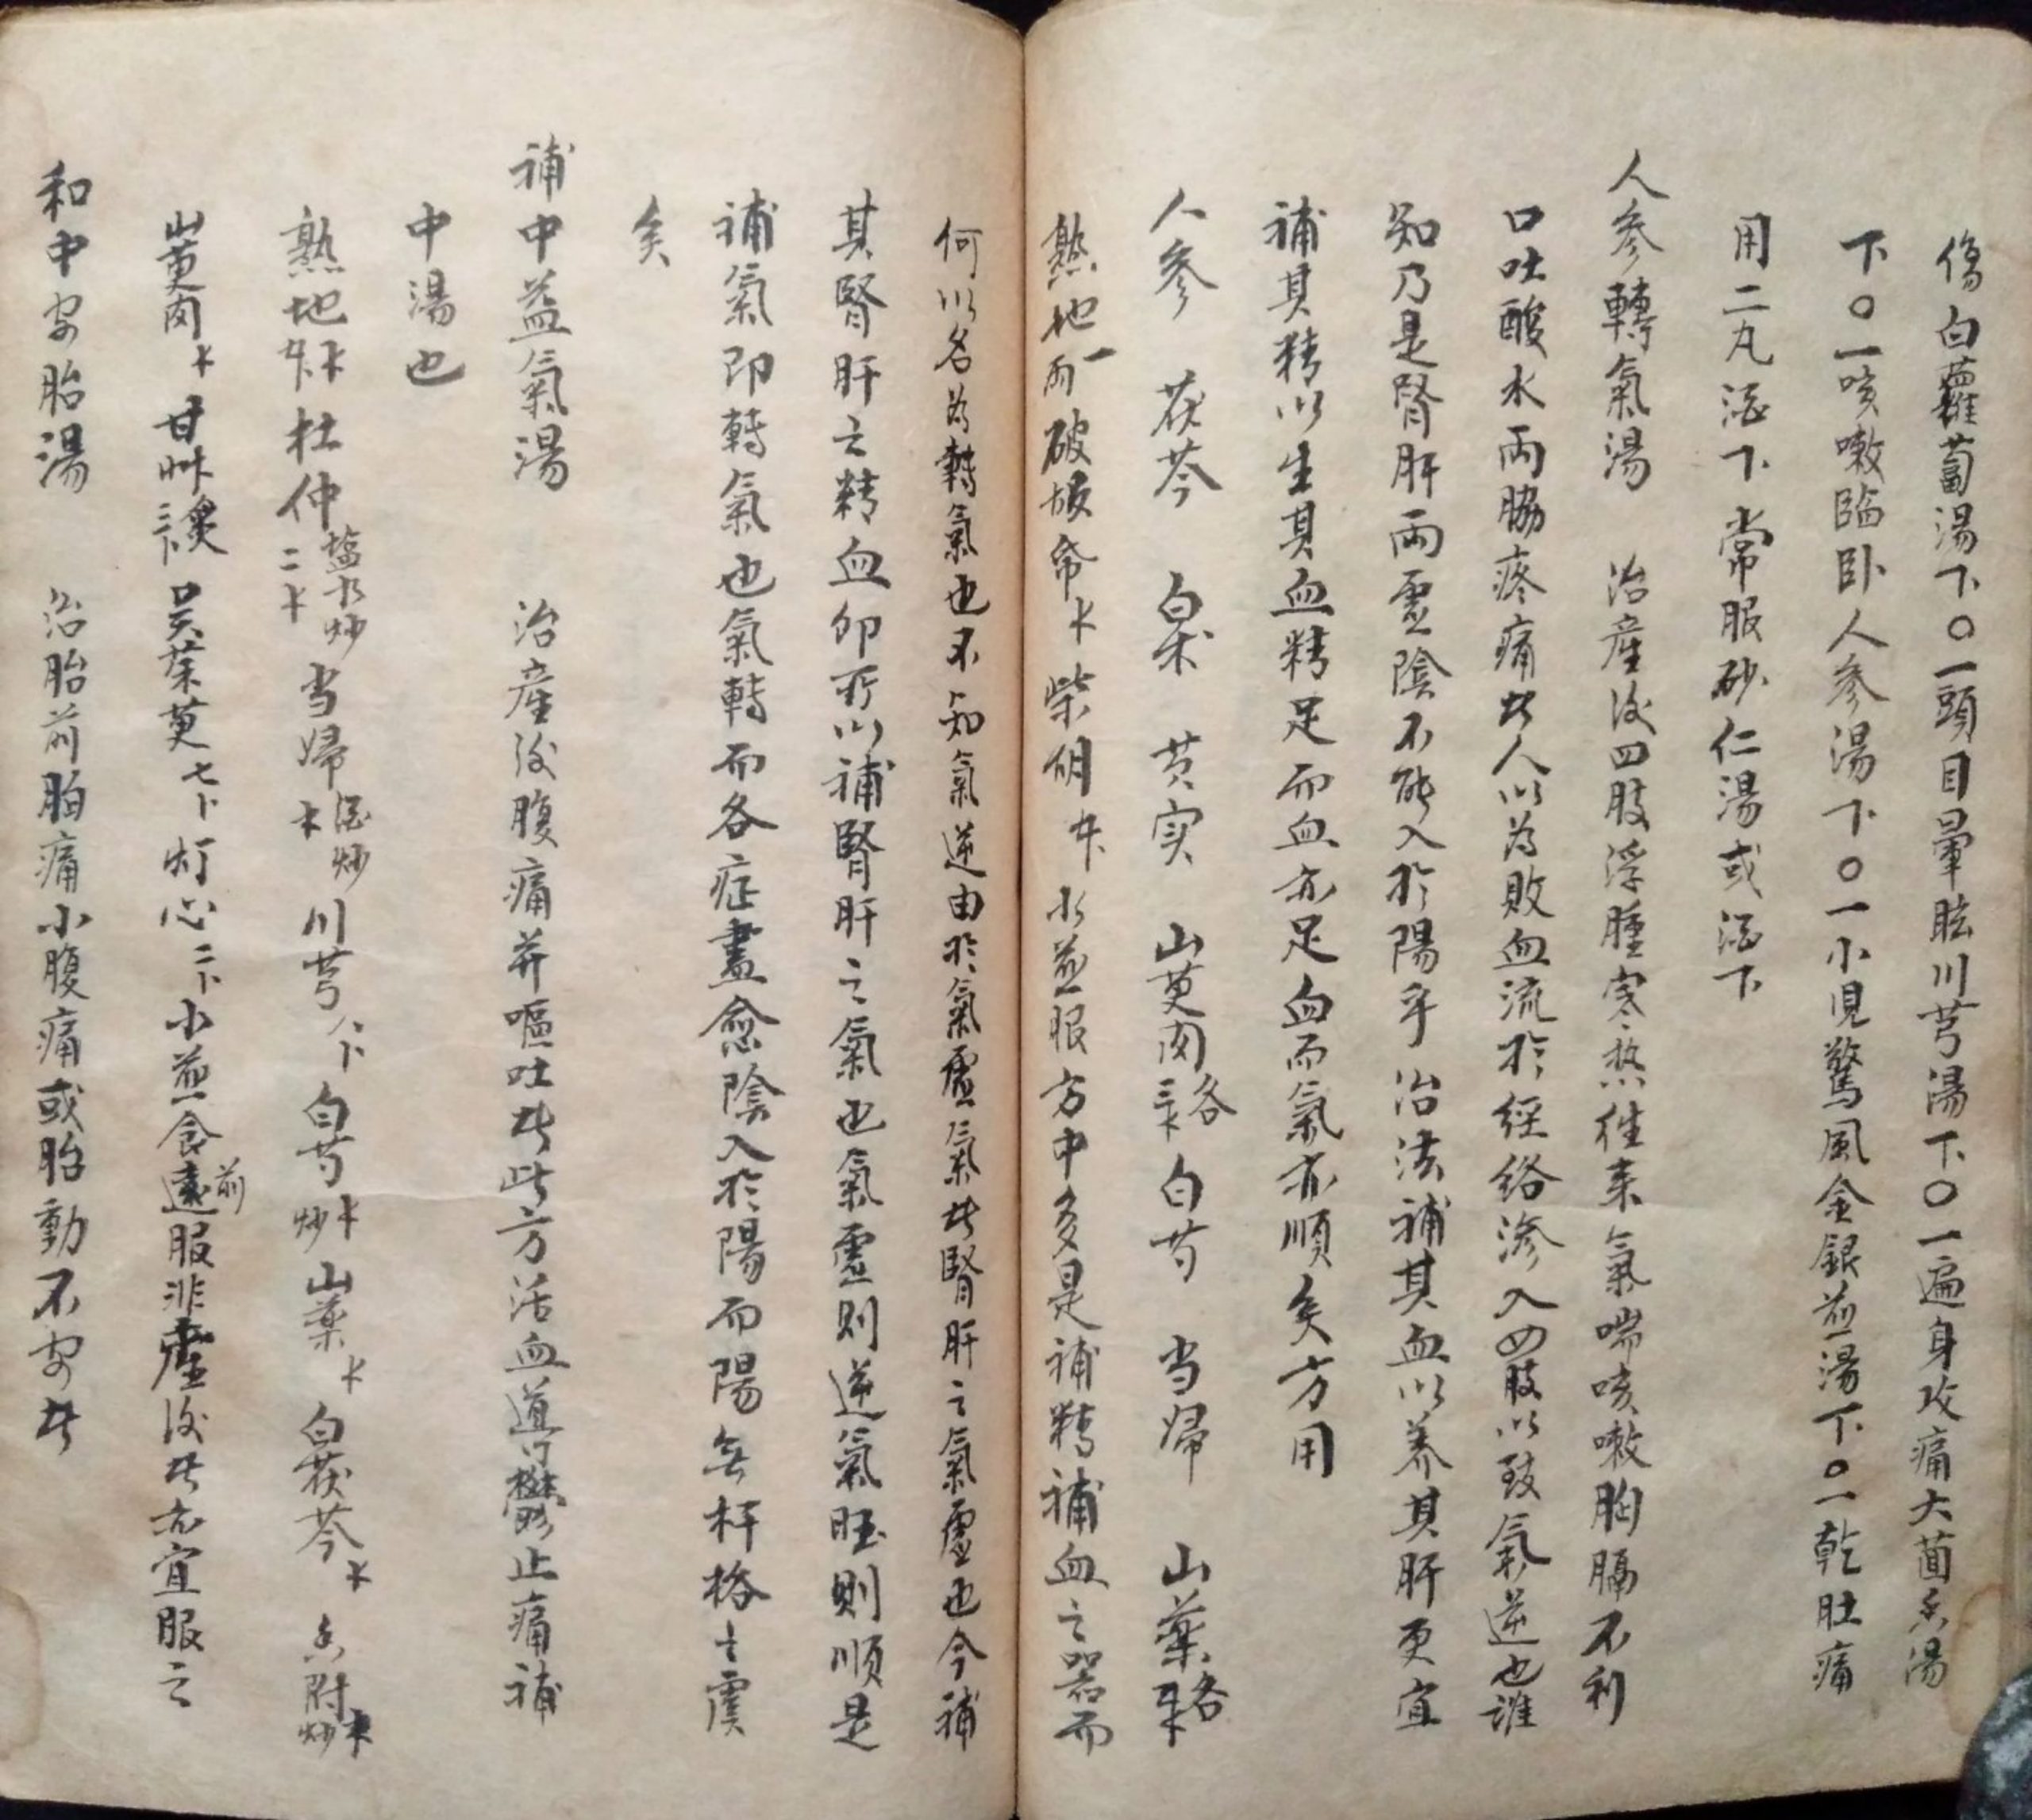 傷白蘿蔔湯下〇一頭目暈眩川芎湯下〇一遍身攻痛大茴香湯
下〇一咳嗽臨卧人參湯下〇一小児驚風金銀煎湯下〇一乾肚痛
用二丸酒下常服砂仁湯或酒下
人參轉氣湯 治産後四肢浮腫寒热徃来氣喘咳嗽胸膈不利
口吐酸水兩脇疼痛者人以為敗血流於經絡滲入四肢以致氣逆也誰
知乃是腎肝兩虛陰不能入於陽乎治法補其血以养其肝更宜
補其精以生其血精足而血亦足血而氣亦順矣方用
人參 茯苓 白术 芡实 山萸肉各 白芍 当歸 山藥各
熟地一兩破故帋 柴胡 水煎服方中多是補精補血之器而
何以名為轉氣也不知氣逆由於氣虛氣者腎肝之氣虛也今補
其腎肝之精血即所以補腎肝之氣也氣虛則逆氣旺則順是
補氣即轉氣也氣轉而各症盡愈陰入於陽而陽無杆格之虞
矣
補中益氣湯 治産後腹痛并嘔吐者此方活血道氣鬱止痛補
中湯也
熟地 杜仲塩水炒 当歸酒炒 川芎 白芍炒 山藥 白茯苓 香附炒
山萸肉 甘艸炙 吴茱萸 灯心 水煎食遠前服非産後者亦宜服之
和中安胎湯 治胎前胎痛小腹痛或胎動不安者